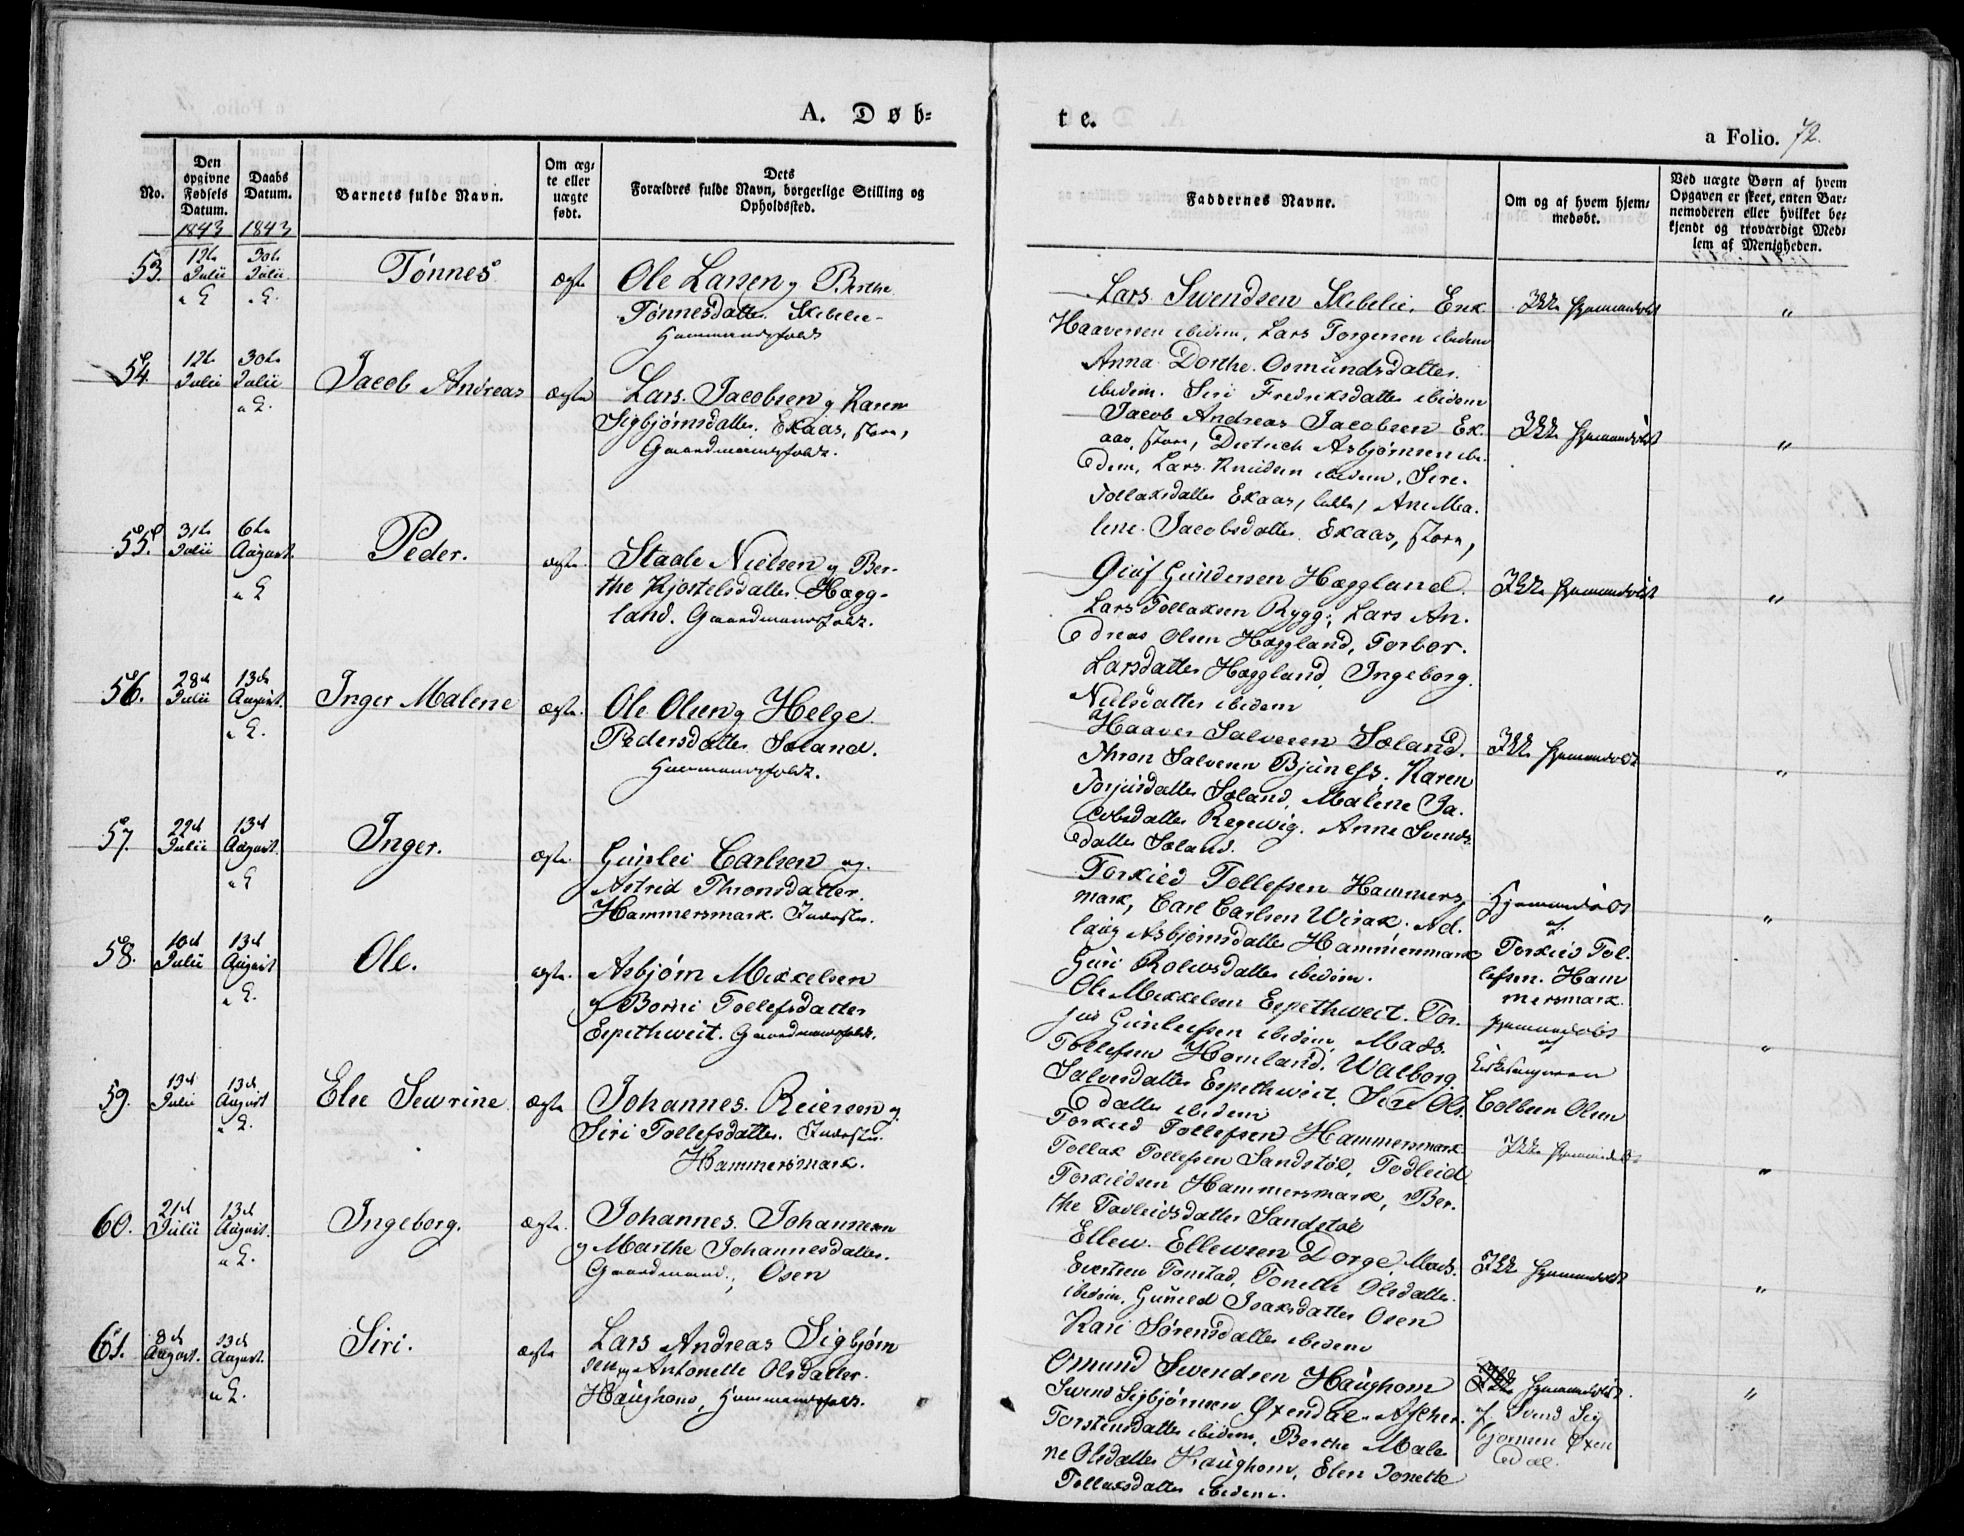 A. Døb=
te.
a Folio. 72.
No.
Den
opgivne
Fødsels
Datum.
Daabs
Datum.
Barnets fulde Navn.
Om æg=
te eller
uægte
født.
Dets
Forældres fulde Navn, borgerlige Stilling og
Opholdssted.
Faddernes Navne.
Om og af hvem hjem=
medøbt.
Ved uægte Børn af hvem
Opgaven er skeet, enten Bar=
nemoderen eller hvilket be=
kjendt og troværdigt Med=
lem af Menigheden.
1843 1843
53. 12te Julii 30te Julii Tønnes ægte
Ole Larsen og Berthe
Tønnesdatter Skibelie
Huusmandsfolk
Lars Swendsen Skibelie, Erik
Haaversen ibidem, Lars Torgersen ibidem
Anna Dorthe Osmundsdatter
ibidem. Siri Fredriksdatter ibidem
Ikke hjemmedøbt "
54. 12te Julii 30te Julii Jacob Andreas ægte
Lars Jacobsen og Karen
Sigbjørnsdatter. Ekaas, store,
Gaardmandsfolk.
Jacob Andreas Jacobsen Ek-
aas, store, Dietrich Asbjørnsen ibi-
dem, Lars Knudsen ibidem, Sire
Tollaksdatter Ekaas, lille, Ane Ma-
lene Jacobsdatter Ekaas, store,
Ikke hjemmedøbt "
55. 31te Julii 6te August Peder. ægte
Staale Nielsen og Ber-
the Kjostelsdatter Hægg-
land. Gaardmandsfolk.
Gunder­sen Hæggland.
Lars Tollaksen Rygg, Lars An-
dreas Olsen Hæggland, Torbor
Larsdatter Hæggland, Ingeborg
Nielsdatter ibidem
Ikke hjemmedøbt "
56. 28de Julii 13de August Inger Malene ægte
Ole Olsen og Helge
Pedersdatter Søland.
Huusmandsfolk.
Haaver Salvesen Søland.
Thron Salvesen Bjuness. Karen
Torjusdatter Søland, Malene Ja-
cobsdatter Regevig. Anne Svends-
datter Søland.
Ikke hjemmedøbt "
57. 22de Julii 13de August Inger. ægte
Gunlei Carlsen og
Astrid Thronsdatter
Hammersmark. Inderster.
Torkild Tollefsen Hammers-
mark, Carl Carlsen Wirak. Ad-
laug Asbjørnsdatter Hammersmark
Guri Rolevsdatter ibidem.
Hjemmedøbt
af
Torkild Tol-
lefsen Ham
mersmark. "
58. 10de Julii 13de August Ole. ægte
Asbjørn Mikkelsen
og Borni Tollefsdatter
Espethweit. Gaardmandsfolk.
Ole Mikkelsen Espethweit. Tor-
jus Gunlefsen ibidem, Mads
Tollefsen Homland, Walborg
Salvesdatter Espethweit, Siri Ols-
datter ibidem
hjemmedøbt
af
Kirkesangeren
Colbeen Olsen "
59. 13de Julii 13de August Else Sewrine ægte
Johannes Reiersen og
Siri Tollefsdatter. Inderster
Hammersmark.
Torkild Tollefsen Hammersmark
Tollak Tollefsen Sandstøl, Todleid
Torkildsen Hammersmark, Ber-
the Todleidsdatter Sandstøl
Ikke hjemmedøbt "
60. 21de Julii 13de August Ingeborg. ægte
Johannes Johannesen
og Marthe Johannesdatter.
Gaardmand, Osen
Ellew Ellewsen Dorge, Mads
Evertsen Tonstad, Tonette Olsdatter
ibidem, Guneld Isaksdatter Osen
Kari Sørensdatter ibidem
Ikke hjemmedøbt "
61. 8de August 13de August Siri. ægte
Lars Andreas Sigbjørn
sen og Antonette Olsdatter
Haughom, Huusmandsfolk.
Omund Swendsen Haughom
Swend Sigbjørnsen Øxendal. Ascher
Torstensdatter ibidem, Berthe Male
ne Olsdatter Haughom, Elen Tonette
Tollaksdatter ibidem.
hjemmedøbt
af Svend Sig
bjørnsen Øxen
dal. "